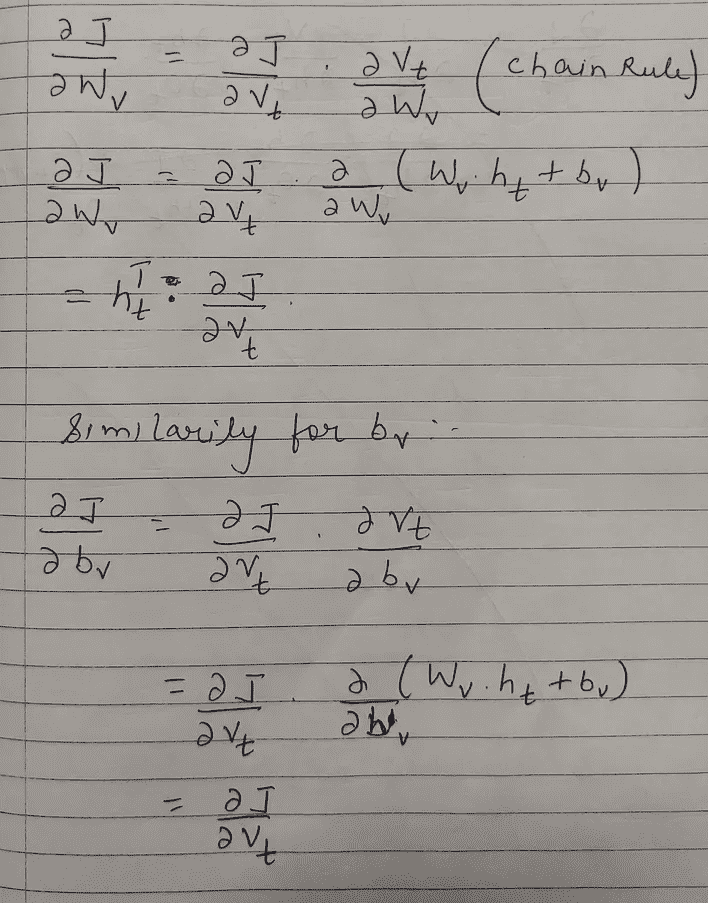 ∂J/∂W_v = ∂J/∂V_t · ∂V_t/∂W_v (Chain Rule)
∂J/∂W_v = ∂J/∂V_t · ∂/∂W_v (W_v · h_t + b_v)
= h_t^T · ∂J/∂V_t .
Similarily for b_v :-
∂J/∂b_v = ∂J/∂V_t · ∂V_t/∂b_v
= ∂J/∂V_t · ∂/∂b_v (W_v · h_t + b_v)
= ∂J/∂V_t